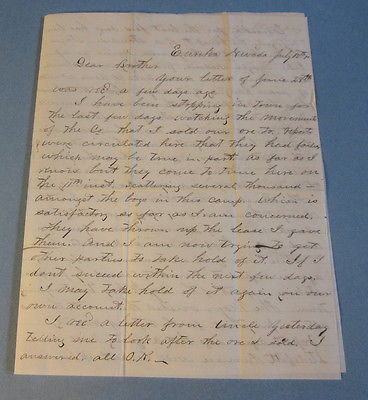 Eureka Nevada July
Dear Brother
Your letter of June 28th
was rec'd a few days ago
I have been stopping in Town for
the last few days watching the movements
of the Co. that I sold our ore to. Report
were circulated here that they had failed
which may be true in part as far as I
know but they come to time here on
the 11th inst. scattering several thousand
amongst the boys in this camp. which is
satisfactory so far as I am concerned.
They have thrown up the lease I gave
them. And I am now trying to get
other parties to take hold of it. If I
dont succeed within the next few days.
I may take hold of it again on our
own account.
I rec'd a letter from Uncle yesterday
telling me to look after the ore I sold. I
answered. all O.K.